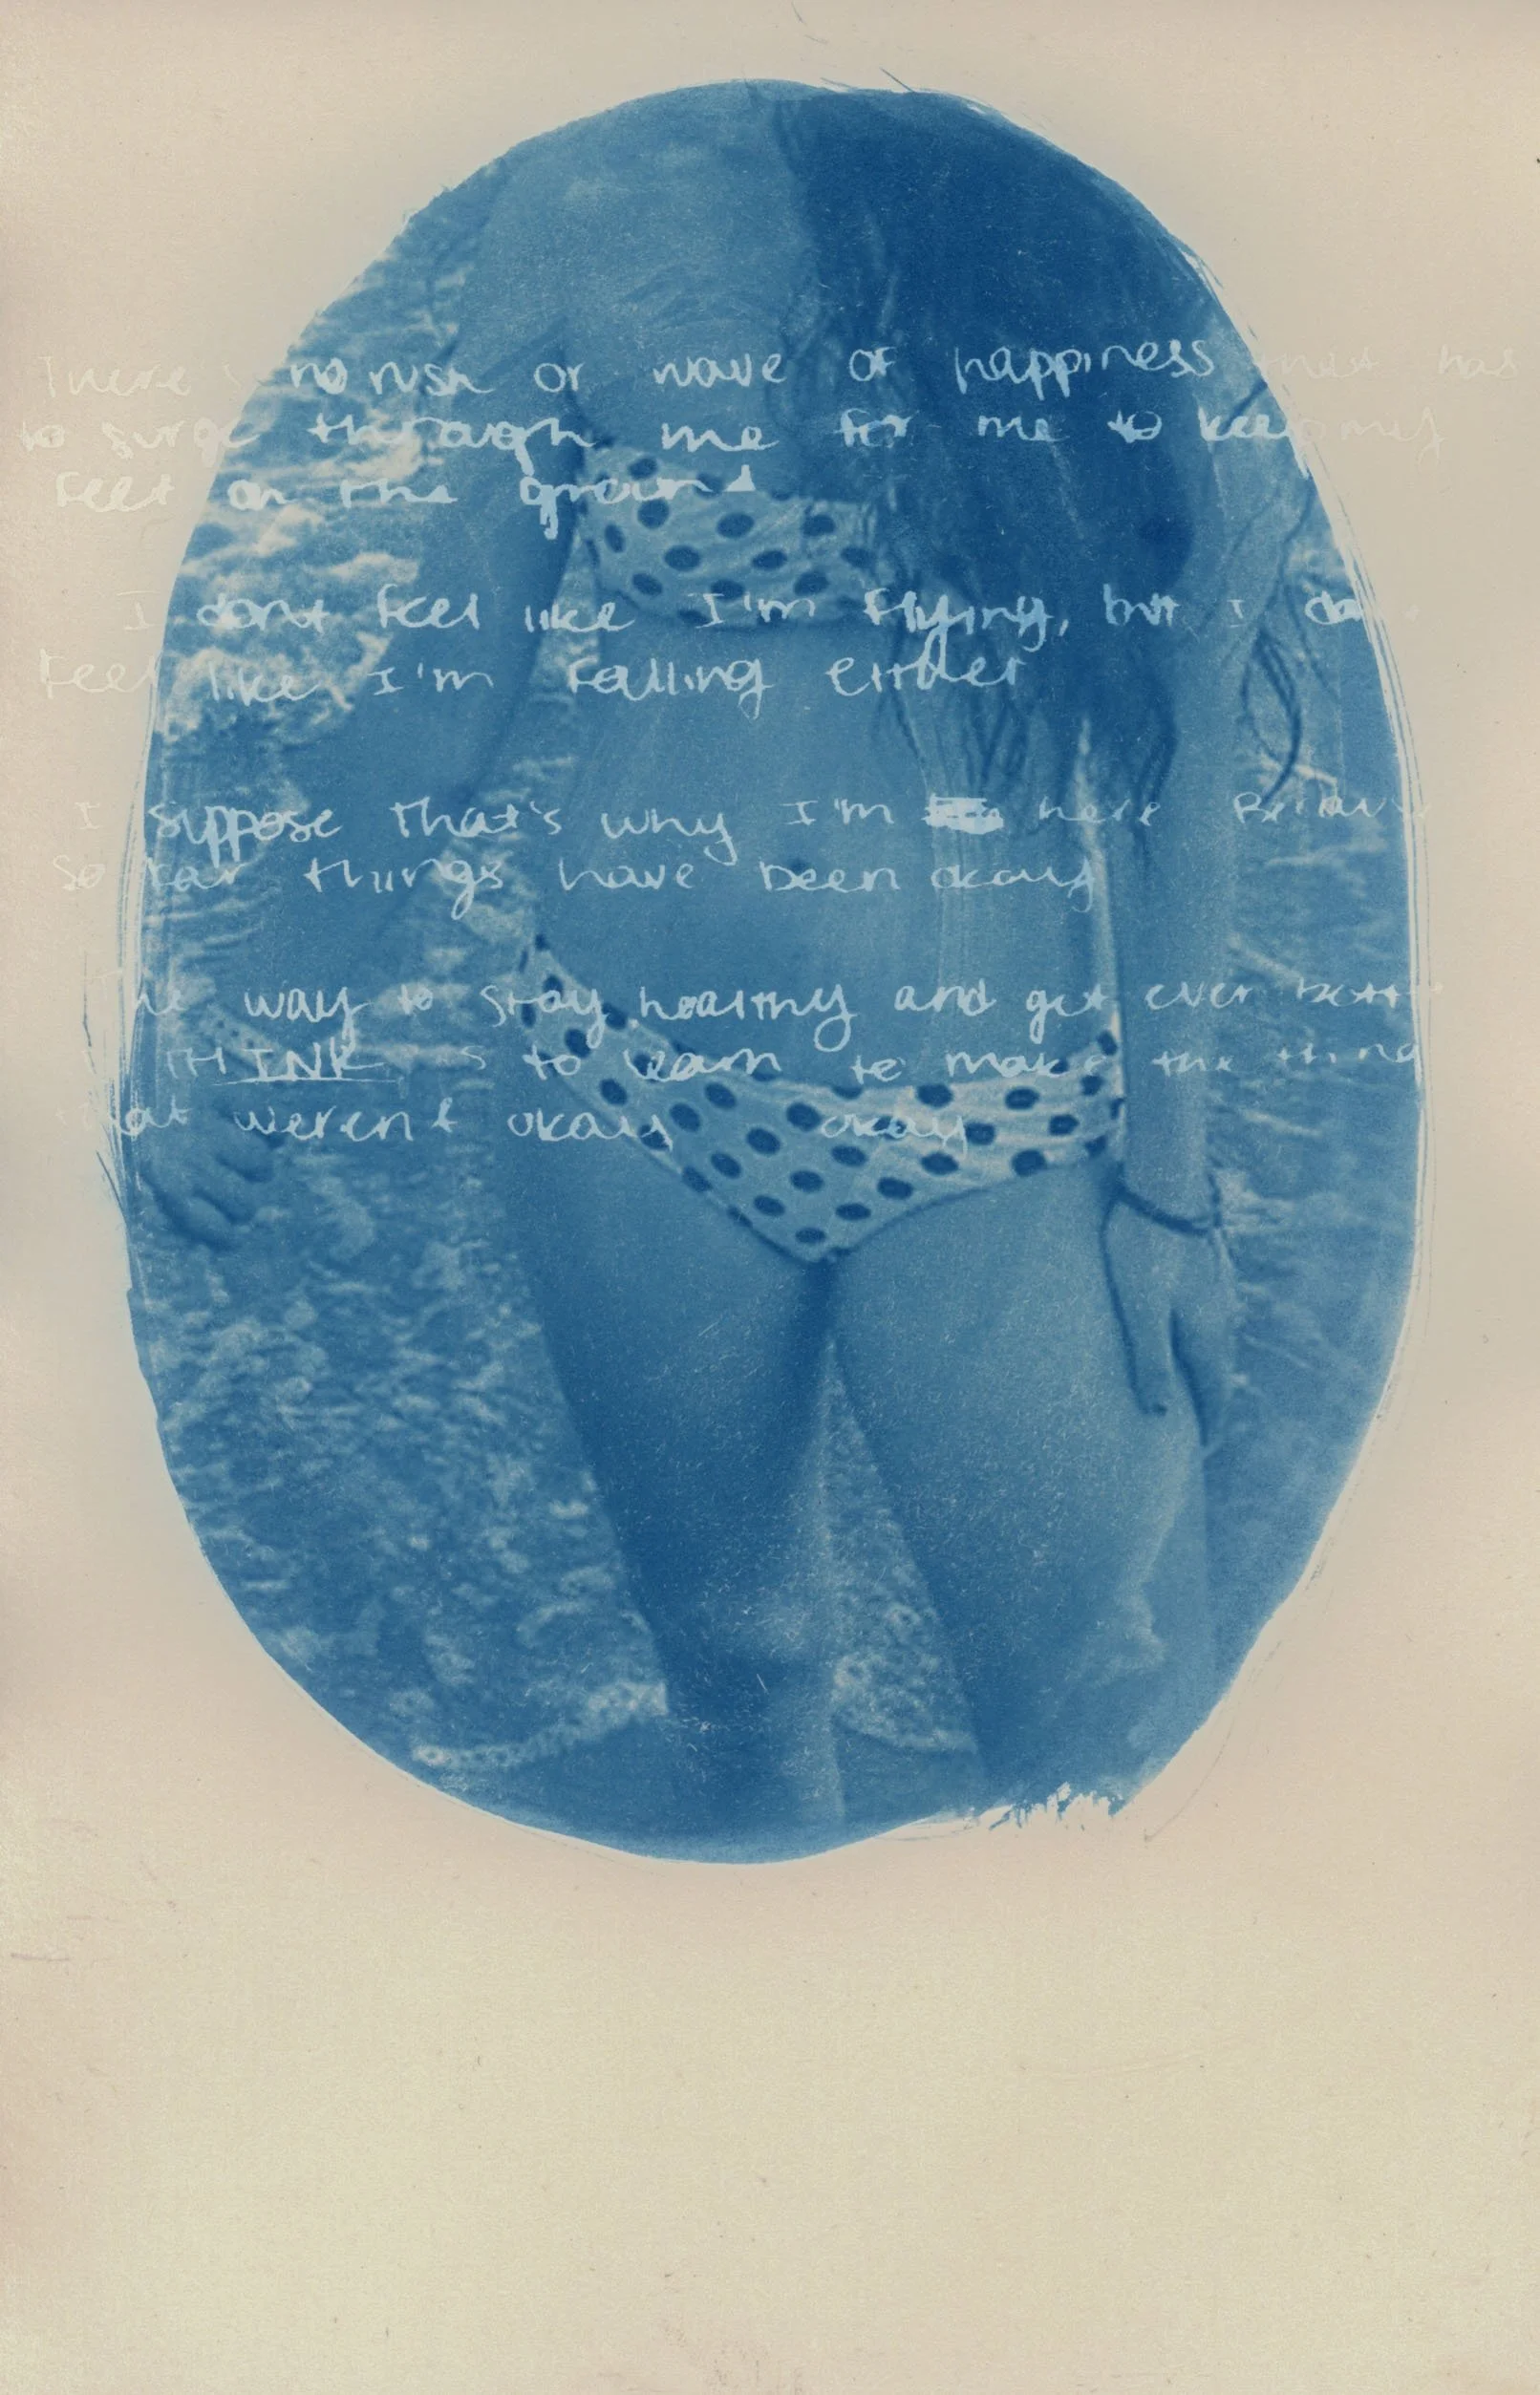 There's no rush or wave of happiness that has
to surge through me for me to keep my
feet on the ground
I dont feel like I'm flying, but I don't
feel like I'm falling either
I suppose that's why I'm here Because
so far things have been okay
The way to stay healthy and get even better
I THINK is to learn to make the things
that weren't okay okay